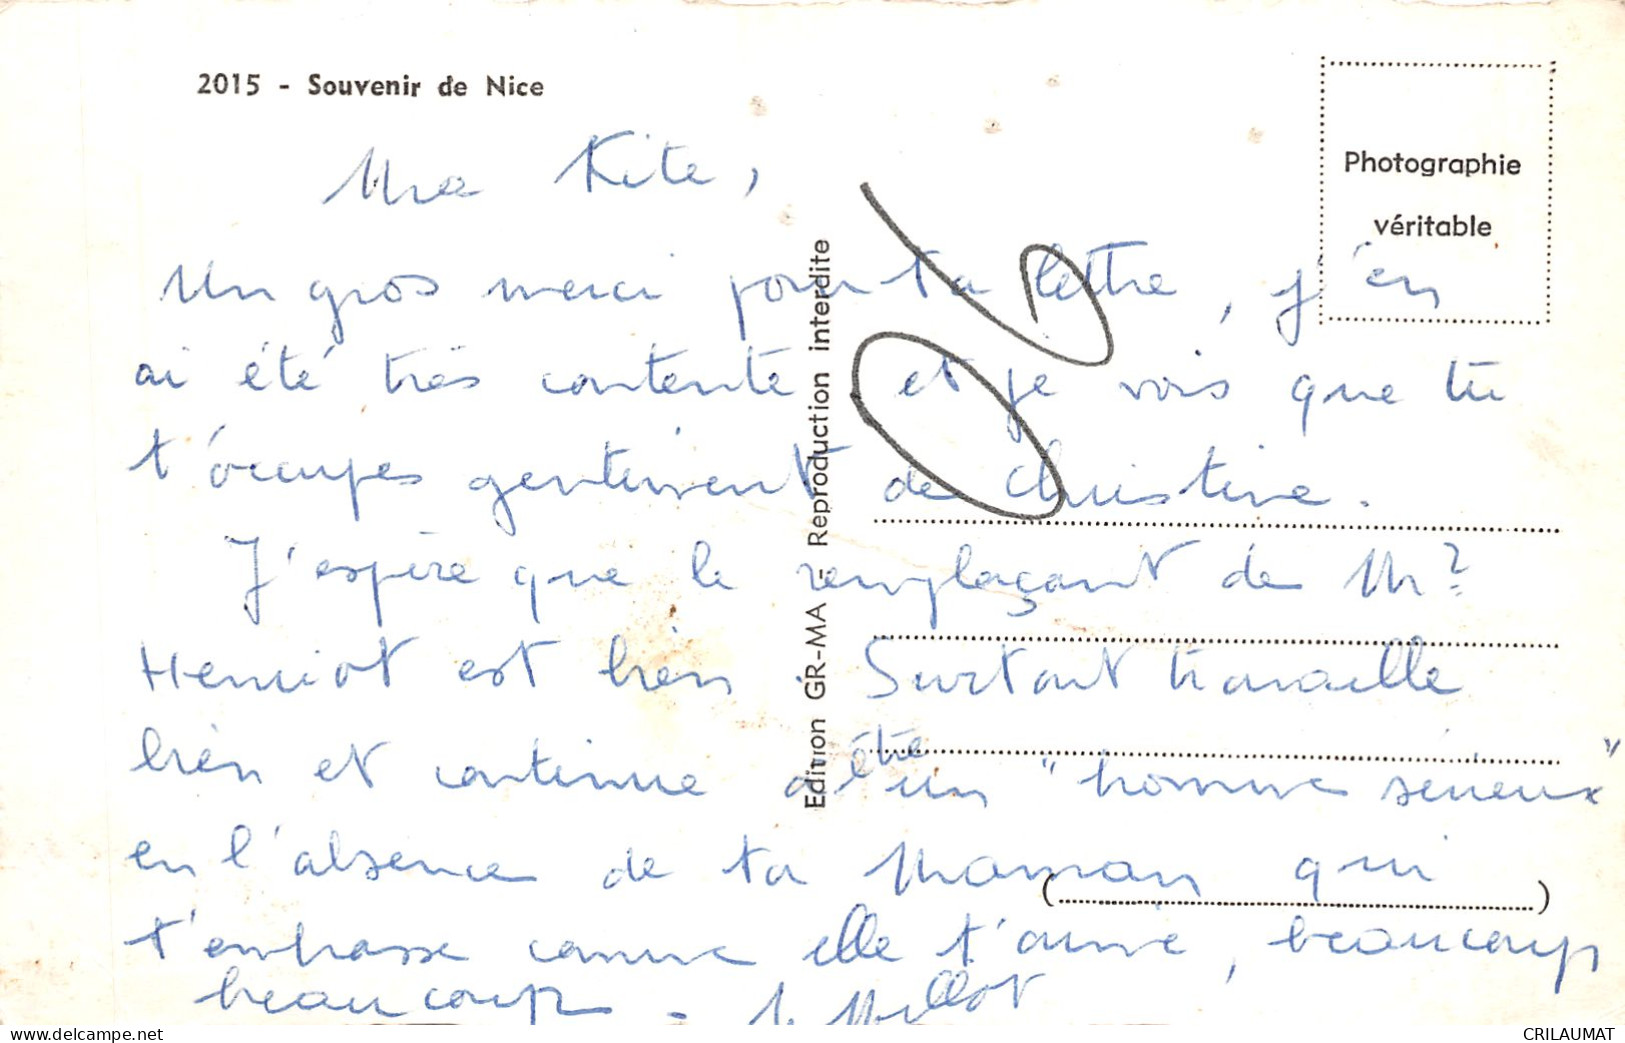 2015 - Souvenir de Nice
Photographie
véritable
Edition GR-MA - Reproduction interdite
Ma Kite,
Un gros merci pour ta lettre, j'en
ai été très contente et je vois que tu
t'occupes gentiment de Christine.
J'espère que le remplaçant de Mr
Henriot est bien. Surtout travaille
bien et continue d'être un "homme sérieux"
en l'absence de ta Maman qui
t'embrasse comme elle t'aime, beaucoup
beaucoup -
www.delcampe.net
CRILAUMAT